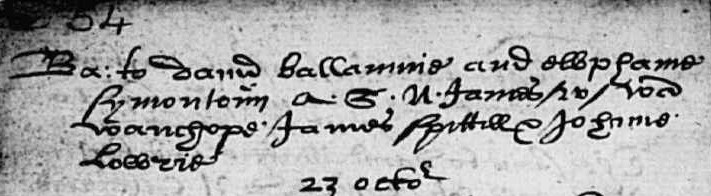 64
Ba: to david ballamnie and elsphame
symontoun a. S. N. James w
wauchope James spittell & Johnne
Lowrie
23 octor